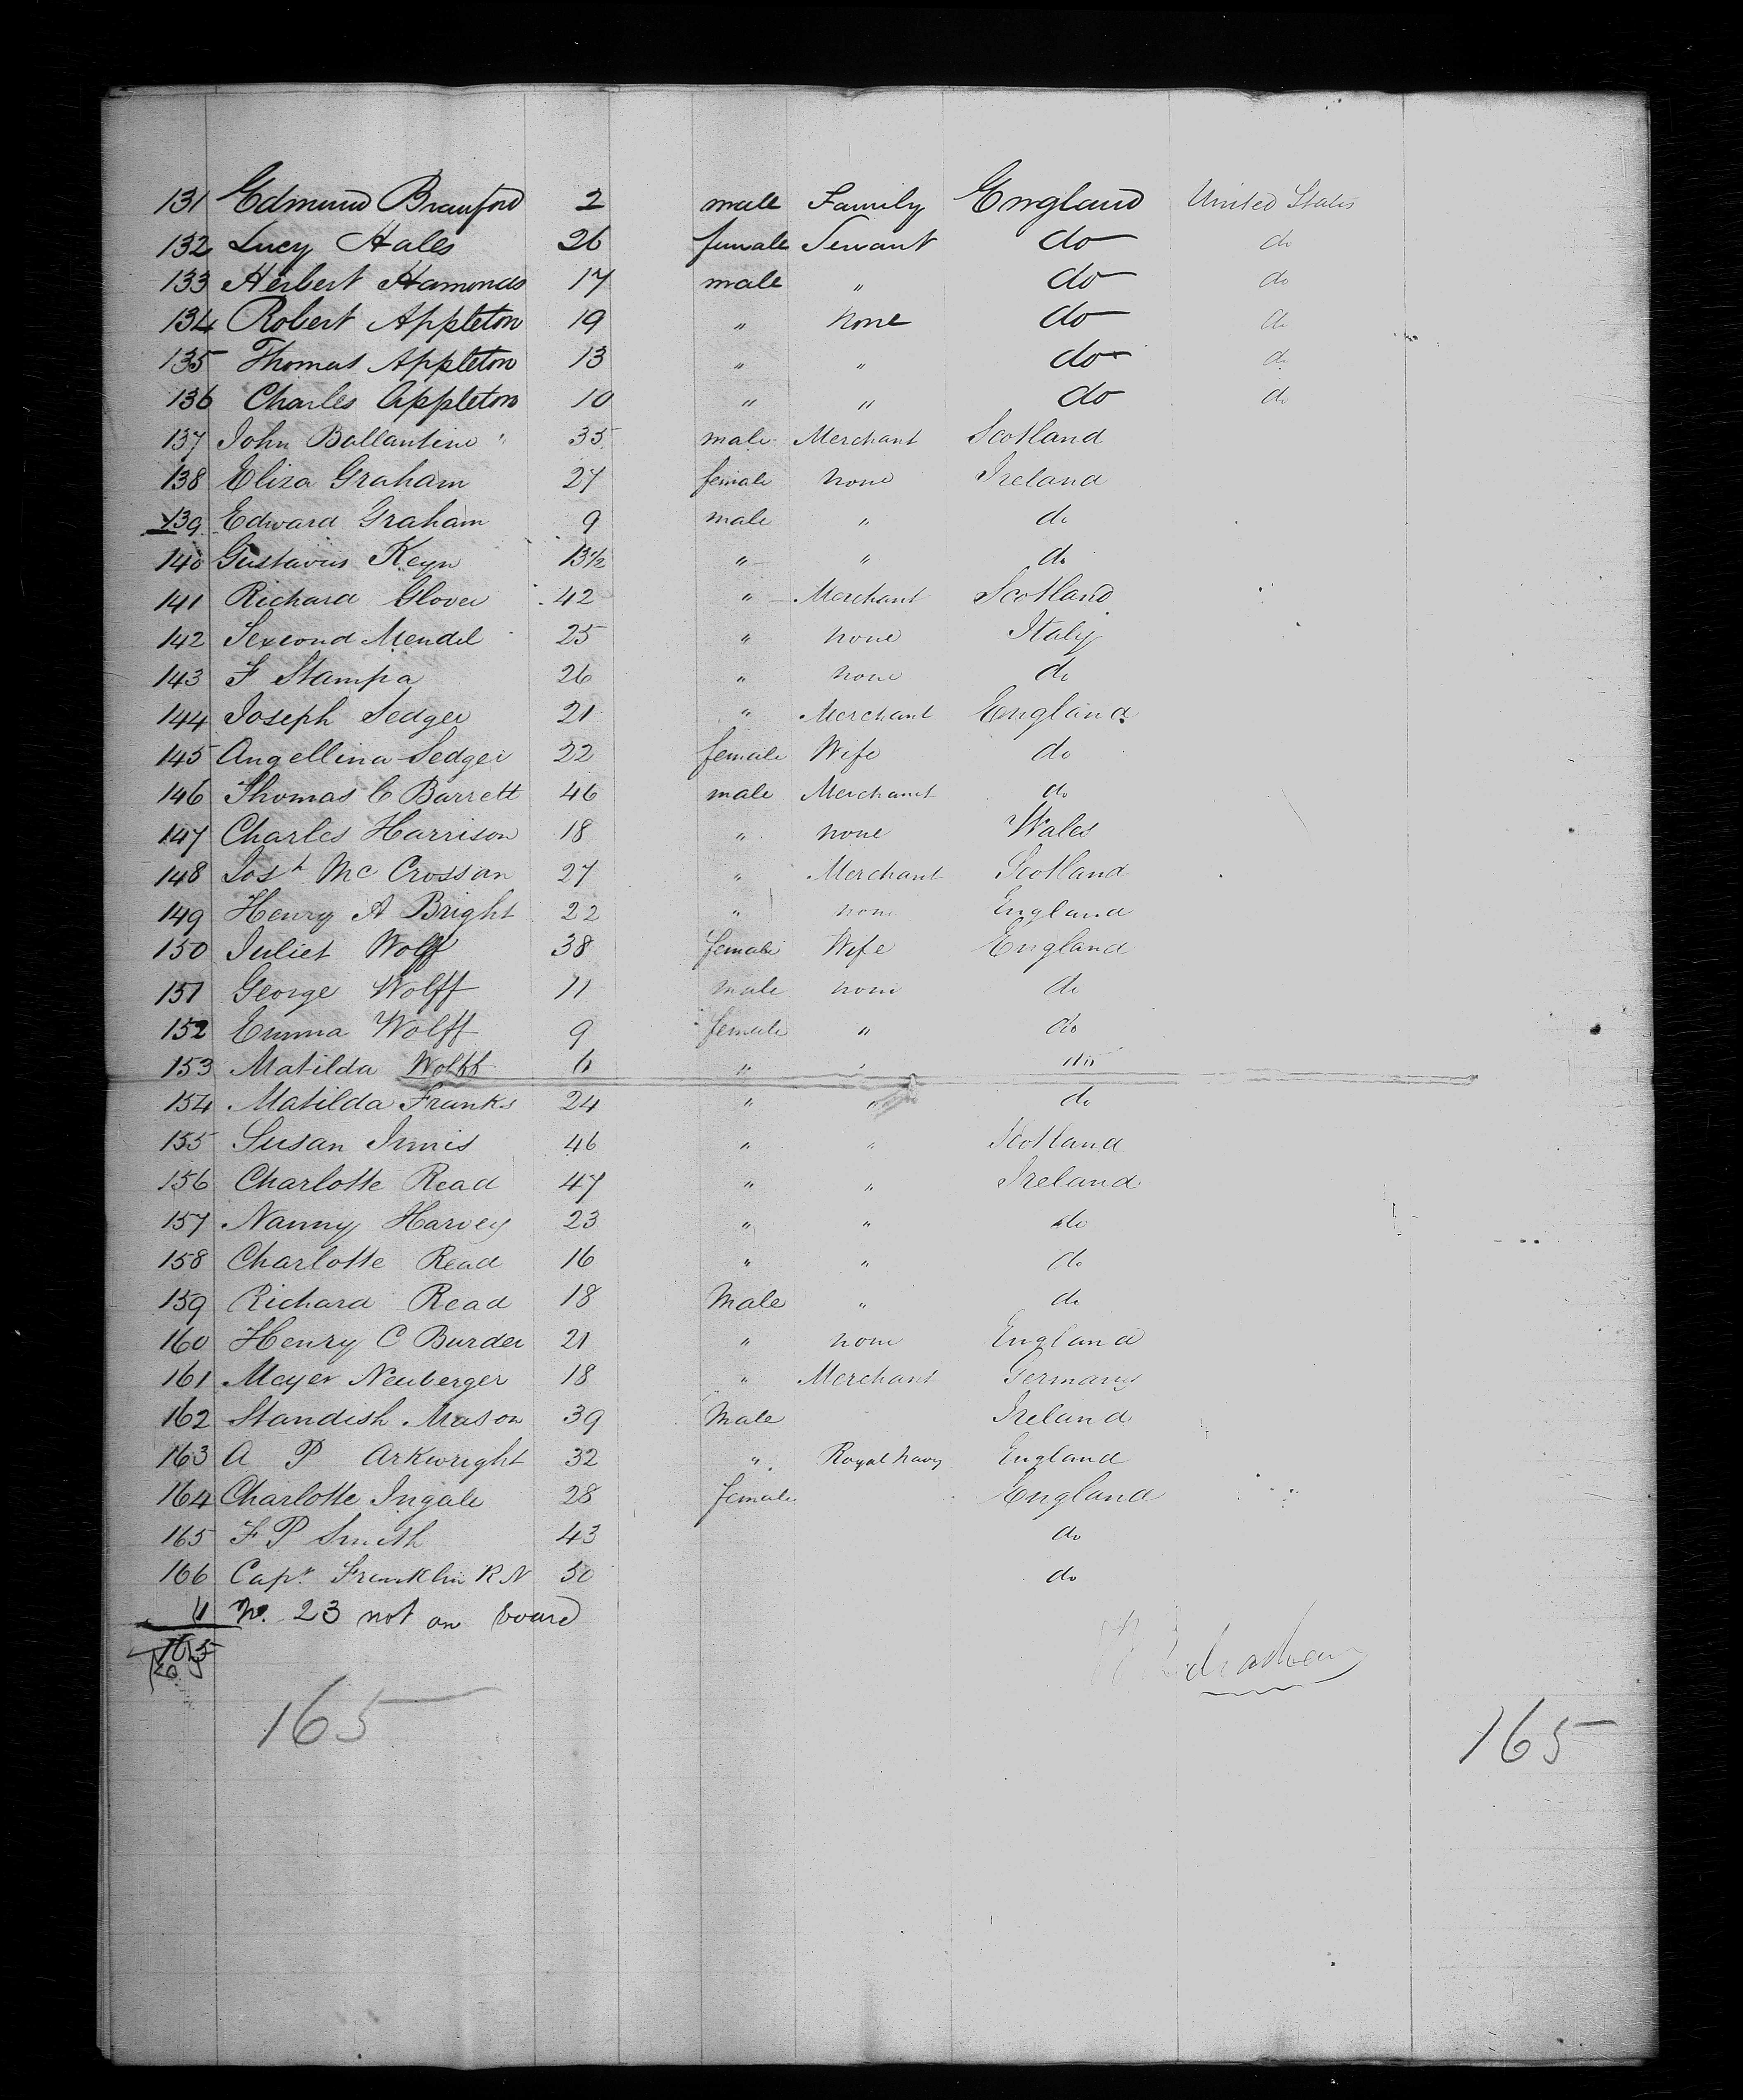 131 Edmund Branford 2 male Family England United States
132 Lucy Hales 26 female Servant do do
133 Herbert Hamonds 17 male " do do
134 Robert Appleton 19 " none do do
135 Thomas Appleton 13 " " do do
136 Charles Appleton 10 " " do do
137 John Ballantine " 35 male Merchant Scotland
138 Eliza Graham 27 female none Ireland
139 Edward Graham 9 male " do
140 Gustavus Keyn 13½ " " do
141 Richard Glover 42 " Merchant Scotland
142 Mendel 25 " none Italy
143 F Stampa 26 " none do
144 Joseph Sedger 21 " Merchant England
145 Angellina Sedger 22 female Wife do
146 Thomas C Barrett 46 male Merchant do
147 Charles Harrison 18 " none Wales
148 Josh McCrossan 27 " Merchant Scotland
149 Henry A Bright 22 " none England
150 Juliet Wolff 38 female Wife England
151 George Wolff 11 male none do
152 Emma Wolff 9 female " do
153 Matilda Wolff 6 " " do
154 Matilda Franks 24 " " do
155 Susan Innis 46 " " Scotland
156 Charlotte Read 47 " " Ireland
157 Nanny Harvey 23 " " do
158 Charlotte Read 16 " " do
159 Richard Read 18 Male " do
160 Henry C Burder 21 " none England
161 Meyer Neuberger 18 " Merchant Germany
162 Standish Mason 39 Male Ireland
163 A P Arkwright 32 " Royal Navy England
164 Charlotte Ingale 28 female England
165 F P Smith 43 do
166 Capt. Franklin R N 50 do
1 No. 23 not on board
165
165
165